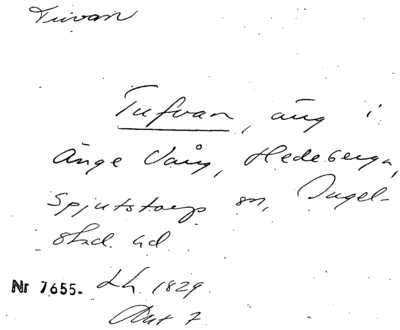 Tuvan
Tufvan, äng i
Änge Vång, Hedeberga,
Spjutstorps sn, Ingel-
stad hd
Nr 7655. Lh. 1829.
Akt 7